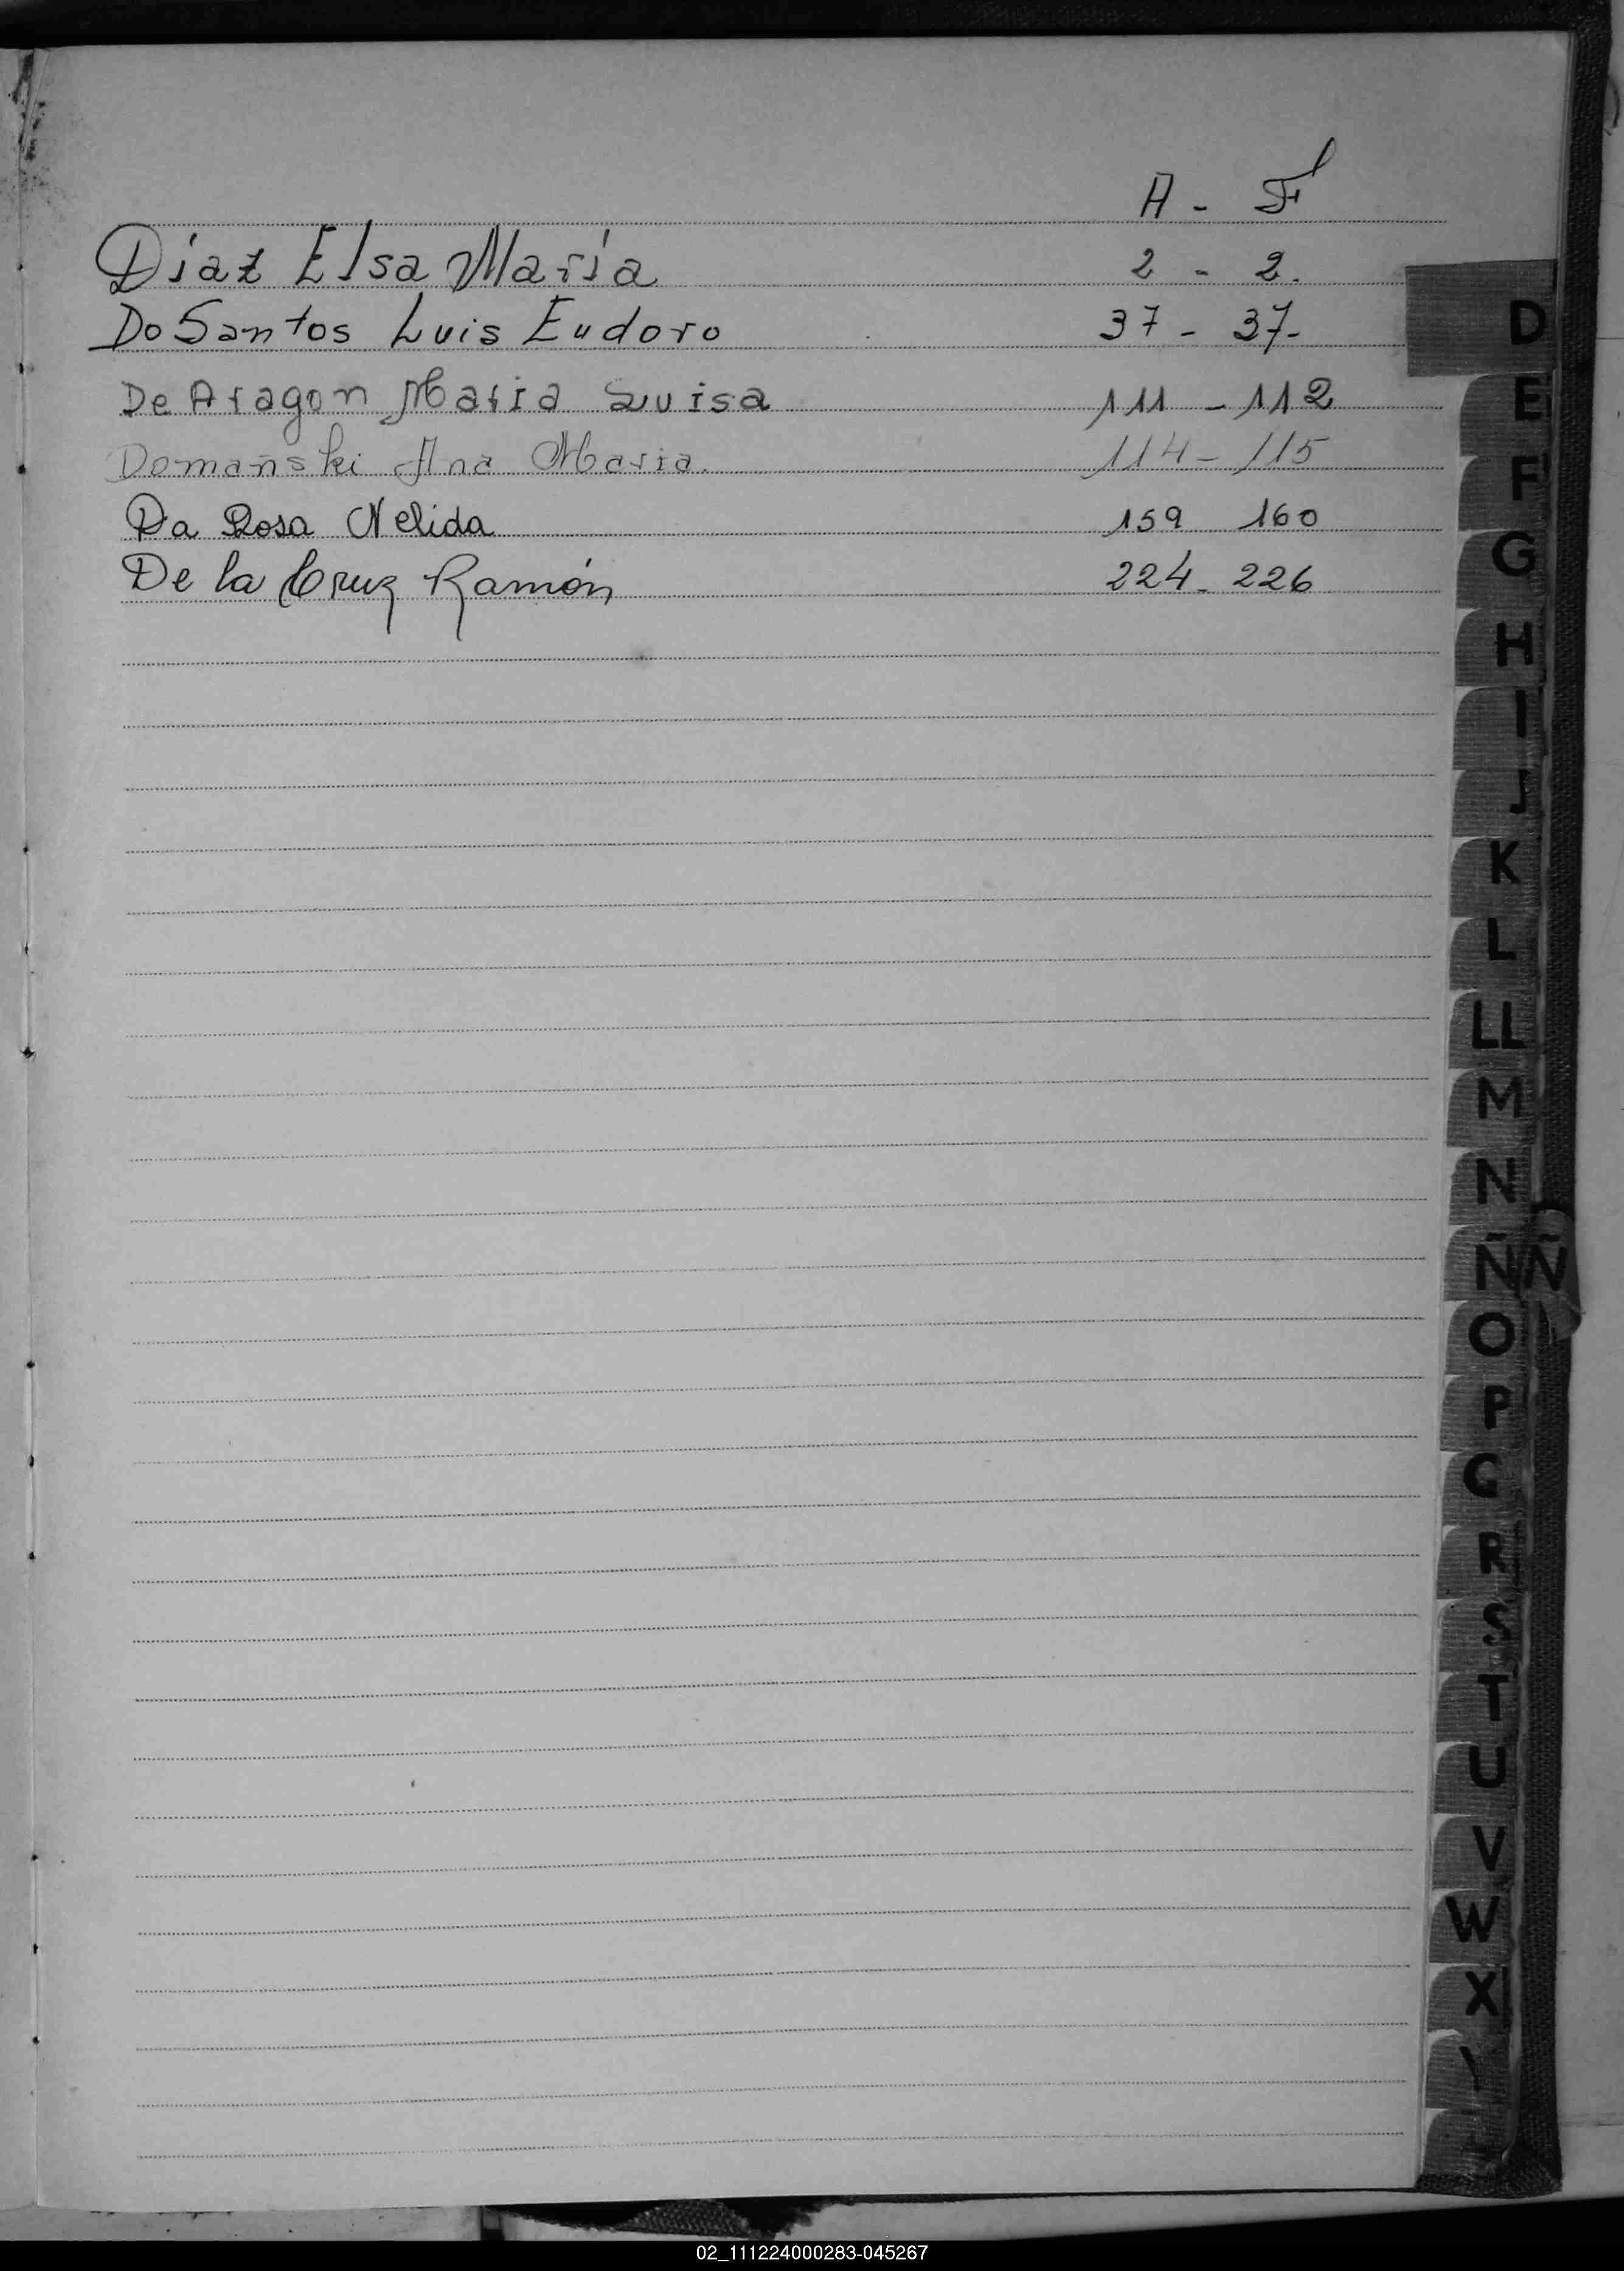 A - F
Diaz Elsa Maria 2 - 2.
Do Santos Luis Eudoro 37 - 37-
De Aragon Maria Luisa 111 - 112
Domañski Ana Maria. 114 - 115
Da Rosa Nelida 159 160
De la Cruz Ramón 224 - 226
D
E
F
G
H
I
J
K
L
LL
M
N
Ñ Ñ
O
P
R
S
T
U
V
W
X
02_111224000283-045267